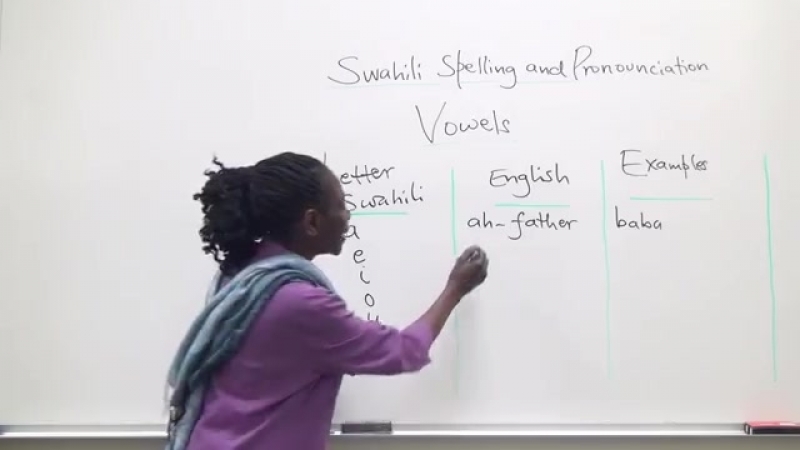 Swahili Spelling and Pronounciation
Vowels
Letter Swahili
English
Examples
a
ah- father
baba
e
i
o
u